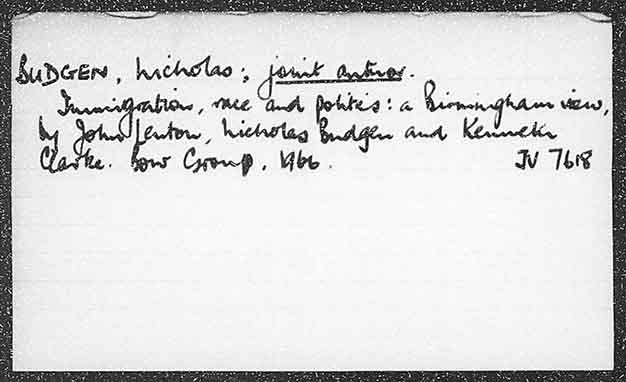 BUDGEN, Nicholas; joint author.
Immigration, race and politics: a Birmingham view,
by John Lenton, Nicholas Budgen and Kenneth
Clarke. Bow Group, 1966. JV 7618